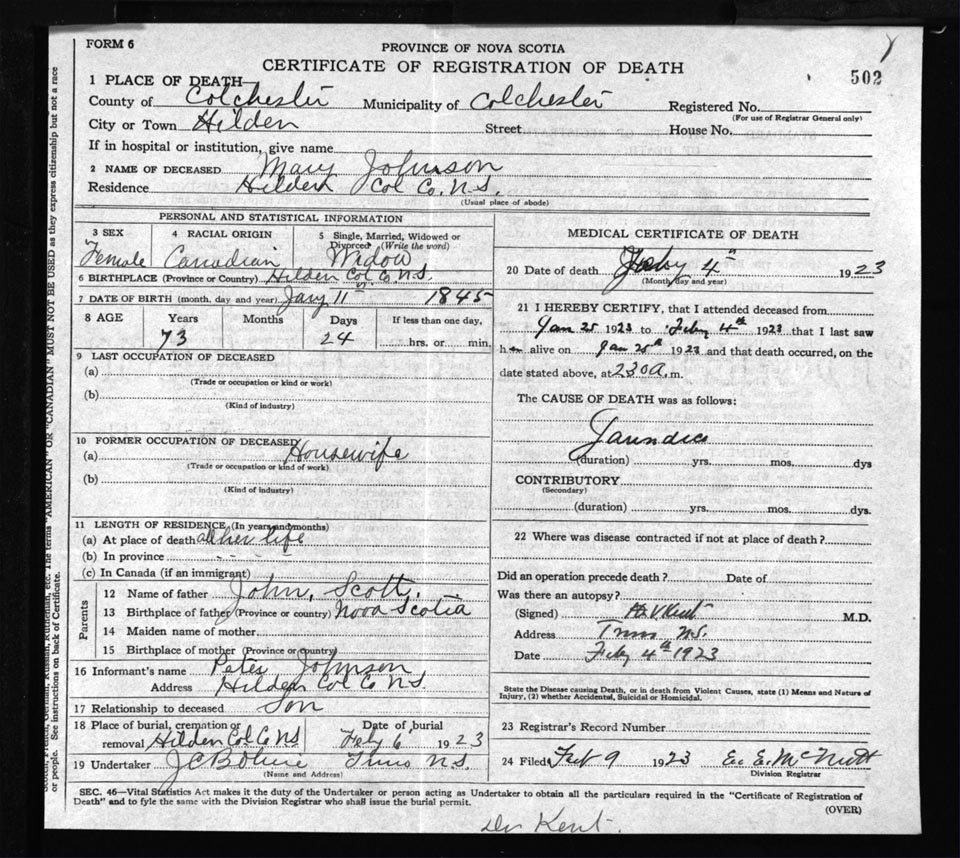 FORM 6
PROVINCE OF NOVA SCOTIA
CERTIFICATE OF REGISTRATION OF DEATH
502
1 PLACE OF DEATH—
County of Colchester Municipality of Colchester Registered No.
(For use of Registrar General only)
City or Town Hilden Street House No.
If in hospital or institution, give name
2 NAME OF DECEASED Mary Johnson
Residence Hilden Col Co. N.S.
(Usual place of abode)
PERSONAL AND STATISTICAL INFORMATION
3 SEX 4 RACIAL ORIGIN 5 Single, Married, Widowed or Divorced (Write the word)
Female Canadian Widow
6 BIRTHPLACE (Province or Country) Hilden Col Co. N.S.
7 DATE OF BIRTH (month, day and year) Jany 11th 1845
8 AGE Years Months Days If less than one day,
73 24 hrs. or min.
9 LAST OCCUPATION OF DECEASED
(a)
(Trade or occupation or kind or work)
(b)
(Kind of industry)
10 FORMER OCCUPATION OF DECEASED
(a) Housewife
(Trade or occupation or kind of work)
(b)
(Kind of industry)
11 LENGTH OF RESIDENCE, (In years and months)
(a) At place of death all her life
(b) In province
(c) In Canada (if an immigrant)
Parents
12 Name of father John Scott
13 Birthplace of father (Province or country) Nova Scotia
14 Maiden name of mother
15 Birthplace of mother (Province or country)
16 Informant's name Peter Johnson
Address Hilden Col Co N.S.
17 Relationship to deceased Son
18 Place of burial, cremation or removal Hilden Col Co NS Date of burial Feby 6 1923
19 Undertaker Truro N.S.
(Name and Address)
MEDICAL CERTIFICATE OF DEATH
20 Date of death Feby 4th 1923
(Month, day and year)
21 I HEREBY CERTIFY, that I attended deceased from
Jan 25 1923 to Feby 4th 1923 that I last saw
her alive on Jan 25th 1923 and that death occurred, on the
date stated above, at 2.30 a. m.
The CAUSE OF DEATH was as follows:
Jaundice
(duration) yrs. mos. dys
CONTRIBUTORY
(Secondary)
(duration) yrs. mos. dys.
22 Where was disease contracted if not at place of death?
Did an operation precede death? Date of
Was there an autopsy?
(Signed) H V Kent M.D.
Address Truro N.S.
Date Feby 4th 1923
State the Disease causing Death, or in death from Violent Causes, state (1) Means and Nature of
Injury, (2) whether Accidental, Suicidal or Homicidal.
23 Registrar's Record Number
24 Filed Feb 9 1923 E. E. McNutt
Division Registrar
SEC. 46—Vital Statistics Act makes it the duty of the Undertaker or person acting as Undertaker to obtain all the particulars required in the "Certificate of Registration of
Death" and to fyle the same with the Division Registrar who shall issue the burial permit.
(OVER)
Dr Kent.
German, Russian, Ruthenian, etc. The terms "AMERICAN" OR "CANADIAN" MUST NOT BE USED as they express citizenship but not a race
or people. See instructions on back of Certificate.